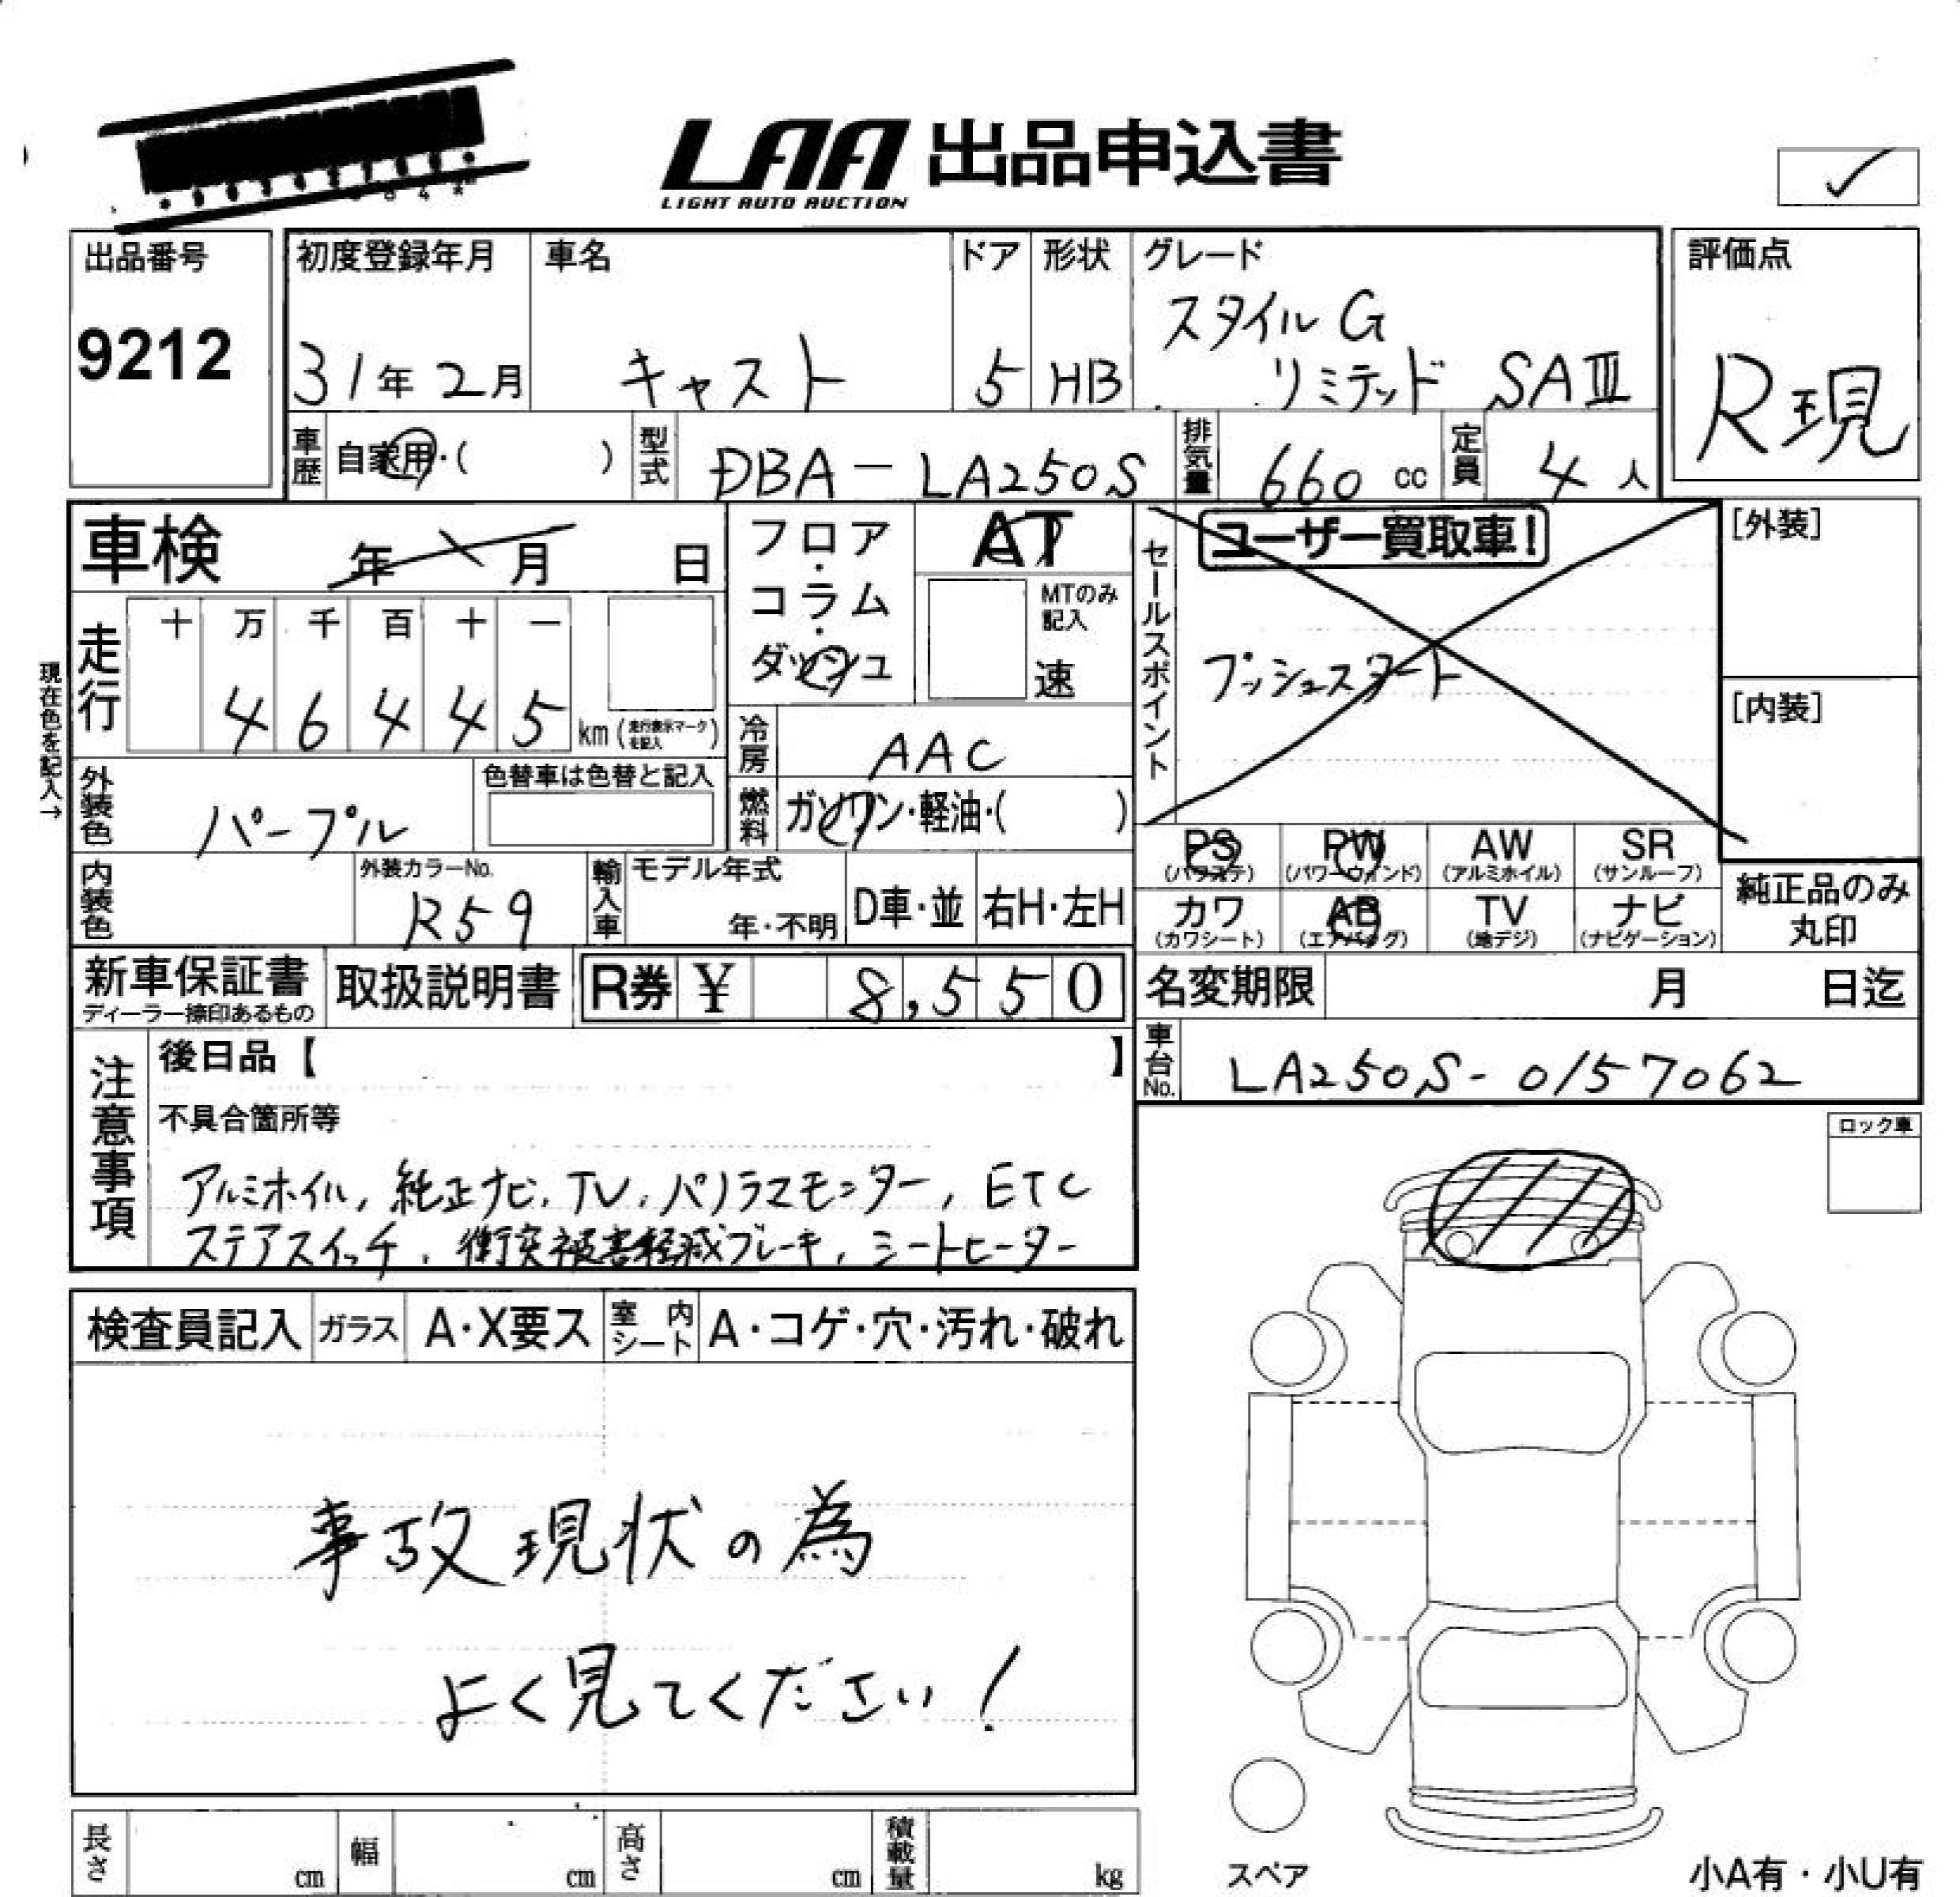 LAA 出品申込書
LIGHT AUTO AUCTION
出品番号
9212
初度登録年月
31年2月
車名
キャスト
ドア
5
形状
HB
グレード
スタイルG
リミテッド SAⅢ
評価点
R現
車歴
自家用・( )
型式
DBA-LA250S
排気量
660 cc
定員
4 人
車検 年 月 日
フロア・コラム・ダッシュ
AT
MTのみ記入
速
セールスポイント
ユーザー買取車!
プッシュスタート
[外装]
[内装]
現在色を記入→
走行
十 万 千 百 十 一
4 6 4 4 5 km (走行表示マークを記入)
冷房
AAC
外装色
パープル
色替車は色替と記入
燃料
ガソリン・軽油・( )
内装色
外装カラーNo.
R59
輸入車
モデル年式
年・不明
D車・並
右H・左H
PS (パワステ)
PW (パワーウインド)
AW (アルミホイル)
SR (サンルーフ)
カワ (カワシート)
AB (エアバッグ)
TV (地デジ)
ナビ (ナビゲーション)
純正品のみ
丸印
新車保証書
ディーラー捺印あるもの
取扱説明書
R券 ¥ 8,550
名変期限 月 日迄
車台No.
LA250S-0157062
注意事項
後日品【 】
不具合箇所等
アルミホイル, 純正ナビ, TV, パノラマモニター, ETC
ステアスイッチ, 衝突被害軽減ブレーキ, シートヒーター
ロック車
検査員記入
ガラス
A・X要ス
室内シート
A・コゲ・穴・汚れ・破れ
事故現状の為
よく見てください!
長さ cm
幅 cm
高さ cm
積載量 kg
スペア
小A有・小U有